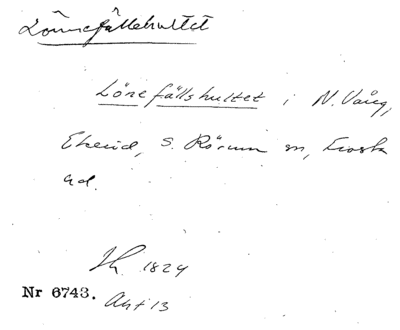 Lönnefällehultet
Lönefällshultet i N. Vång,
Ekeröd, S. Rörum sn, Frosta
hd.
Jh. 1824
Nr 6743. Akt 13